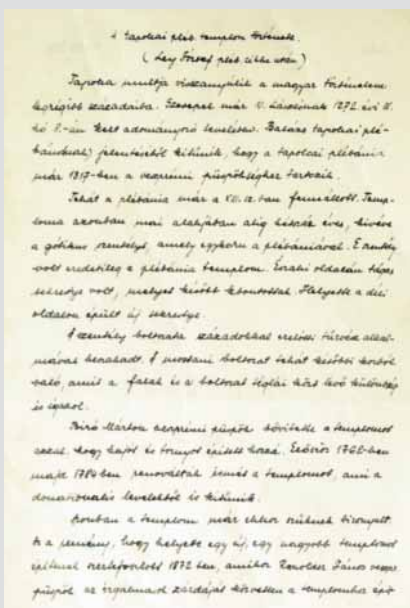 A tapolcai pléb. templom története.
(Ley József pléb. cikke után)
Tapolca multja visszanyúlik a magyar történelem
legrégibb századaiba. Szerepel már V. 1272. évi
kelt adományozó levelében. Balázs tapolcai plé-
jelentéséből kitűnik, hogy a tapolcai plébánia
már 1317-ben a veszprémi püspökséghez tartozik.
Tehát a plébánia már a ban fennállott. Temp-
loma azonban mai alakjában alig kétszáz éves, kivéve
a gótikus szentélyt, amely egykorú a plébániával. E szentély
volt eredetileg a plébánia templom. Északi oldalán
sekrestye volt, melyet később lebontottak. Helyette a déli
oldalon épült új sekrestye.
A szentély boltozata századokkal ezelőtt tűzvész alkal-
mával beszakadt. A mostani boltozat tehát későbbi korból
való, amit a falak és a boltozat téglái közt levő különbség
is igazol.
Bíró Márton veszprémi püspök bővítette a templomot
azzal, hogy hajót és tornyot épített hozzá. Először 1762-ben
majd 1784-ben renoválták ismét a templomot, ami a
levelekből is kitűnik.
Azonban a templom már ekkor szűknek bizonyult.
És a remény, hogy helyette egy új, egy nagyobb templomot
építenek szertefoszlott 1872-ben, amikor Ranolder János veszpr.
püspök az irgalmasok zárdáját közvetlen a templomhoz épí-